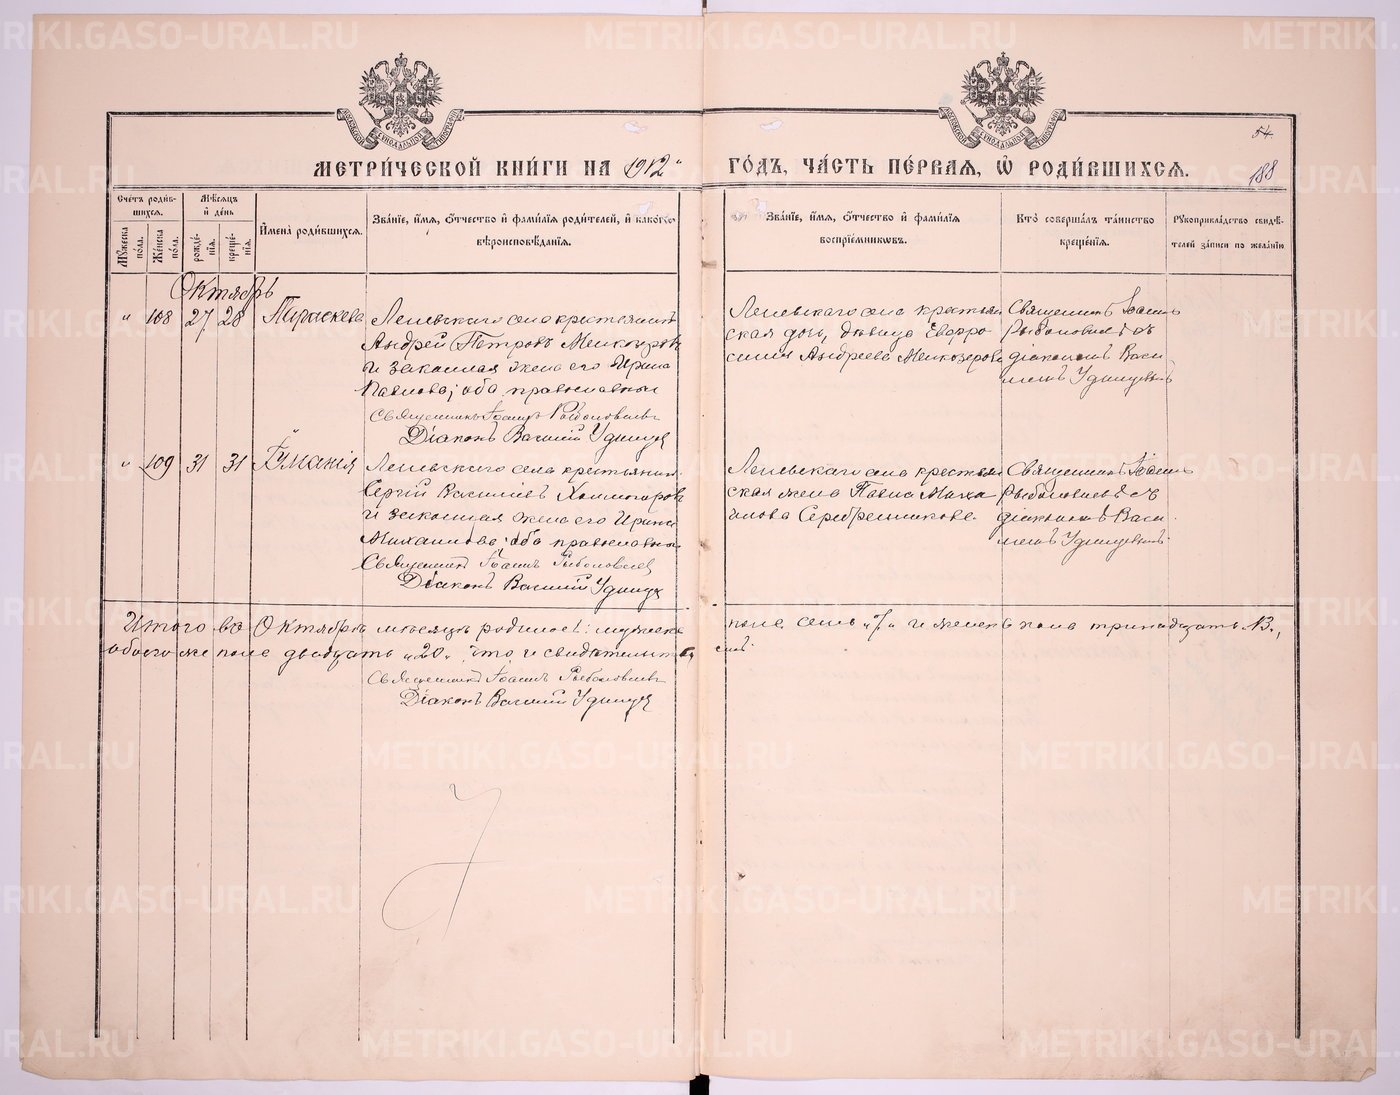 МЕТРИ́ЧЕСКОЙ КНИ́ГИ НА 1912 ГО́ДЪ, ЧА́СТЬ ПЕ́РВАЯ, Ѡ РОДИ́ВШИХСЯ.
54
188
Сче́тъ роди́в-
шихся.
Мѣ́сяцъ
и́ де́нь
Му́жеска по́ла.
Же́нска по́ла.
рожде́-
нїя.
креще́-
нїя.
И҆мена̀ роди́вшихся.
Зва́нїе, и҆́мя, ѻ҆́тчество и҆ фами́лїя роди́телей, и҆ како́гѡ
вѣроисповѣ́данїя.
Зва́нїе, и҆́мя, ѻ҆́тчество и҆ фами́лїя
воспрїе́мникѡвъ.
Кто̀ соверша́лъ та́инство
креще́нїя.
Рꙋкоприкла́дство свидѣ́-
телей за́писи по жела́нїю
Октябрь
" 108 27 28 Параскева
Леневскаго села крестьянинъ
Андрей Петровъ
и законная жена его Ирина
Павлова; оба православные
Священникъ Іоаннъ Рыболовлевъ
Діаконъ Василій Удинцевъ
Леневскаго села крестьян
ская дочь, девица Евфро
синия Андреева
Священникъ Іоаннъ
Рыболовлевъ съ
діакономъ Васи
ліемъ Удинцевымъ
" 109 31 31
Леневскаго села крестьянинъ
Сергій Василіевъ Холмогоровъ
и законная жена его Ирина
Михаилова; оба православные
Священникъ Іоаннъ Рыболовлевъ
Діаконъ Василій Удинцевъ
Леневскаго села крестьян
ская жена Павла Миха
илова Серебренникова.
Священникъ Іоаннъ
Рыболовлевъ съ
діакономъ Васи
ліемъ Удинцевымъ
Итого въ Октябрѣ мѣсяцѣ родилось: мужеска пола семь „7„ и женска пола тринадцать 13.,
обоего же пола двадцать „20„ что и свидѣтельству
емъ
Священникъ Іоаннъ Рыболовлевъ
Діаконъ Василій Удинцевъ
METRIKI.GASO-URAL.RU